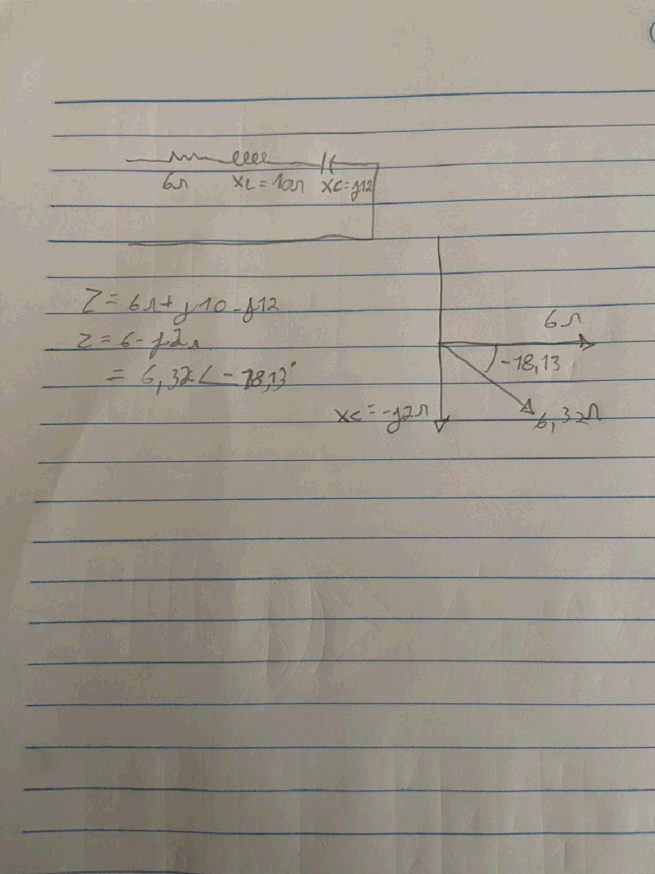 6Ω XL=10Ω XC=j12
Z=6Ω+j10-j12
Z=6-j2Ω
= 6,32∠-18,13°
6Ω
-18,13
XC=-j2Ω
6,32Ω